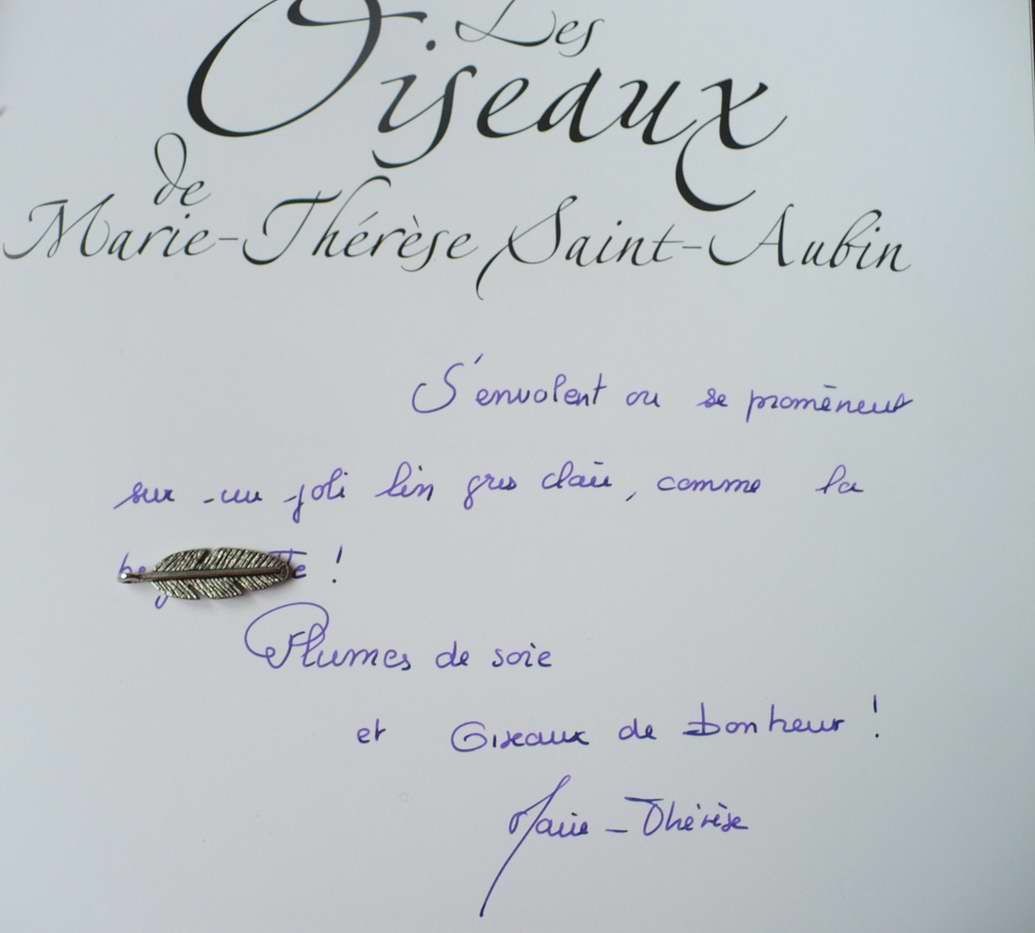 Les
Oiseaux
de
Marie-Thérèse Saint-Aubin
S'envolent ou se promènent
sur un joli lin gris clair, comme la
!
Plumes de soie
et Oiseaux de bonheur !
Marie-Thérèse